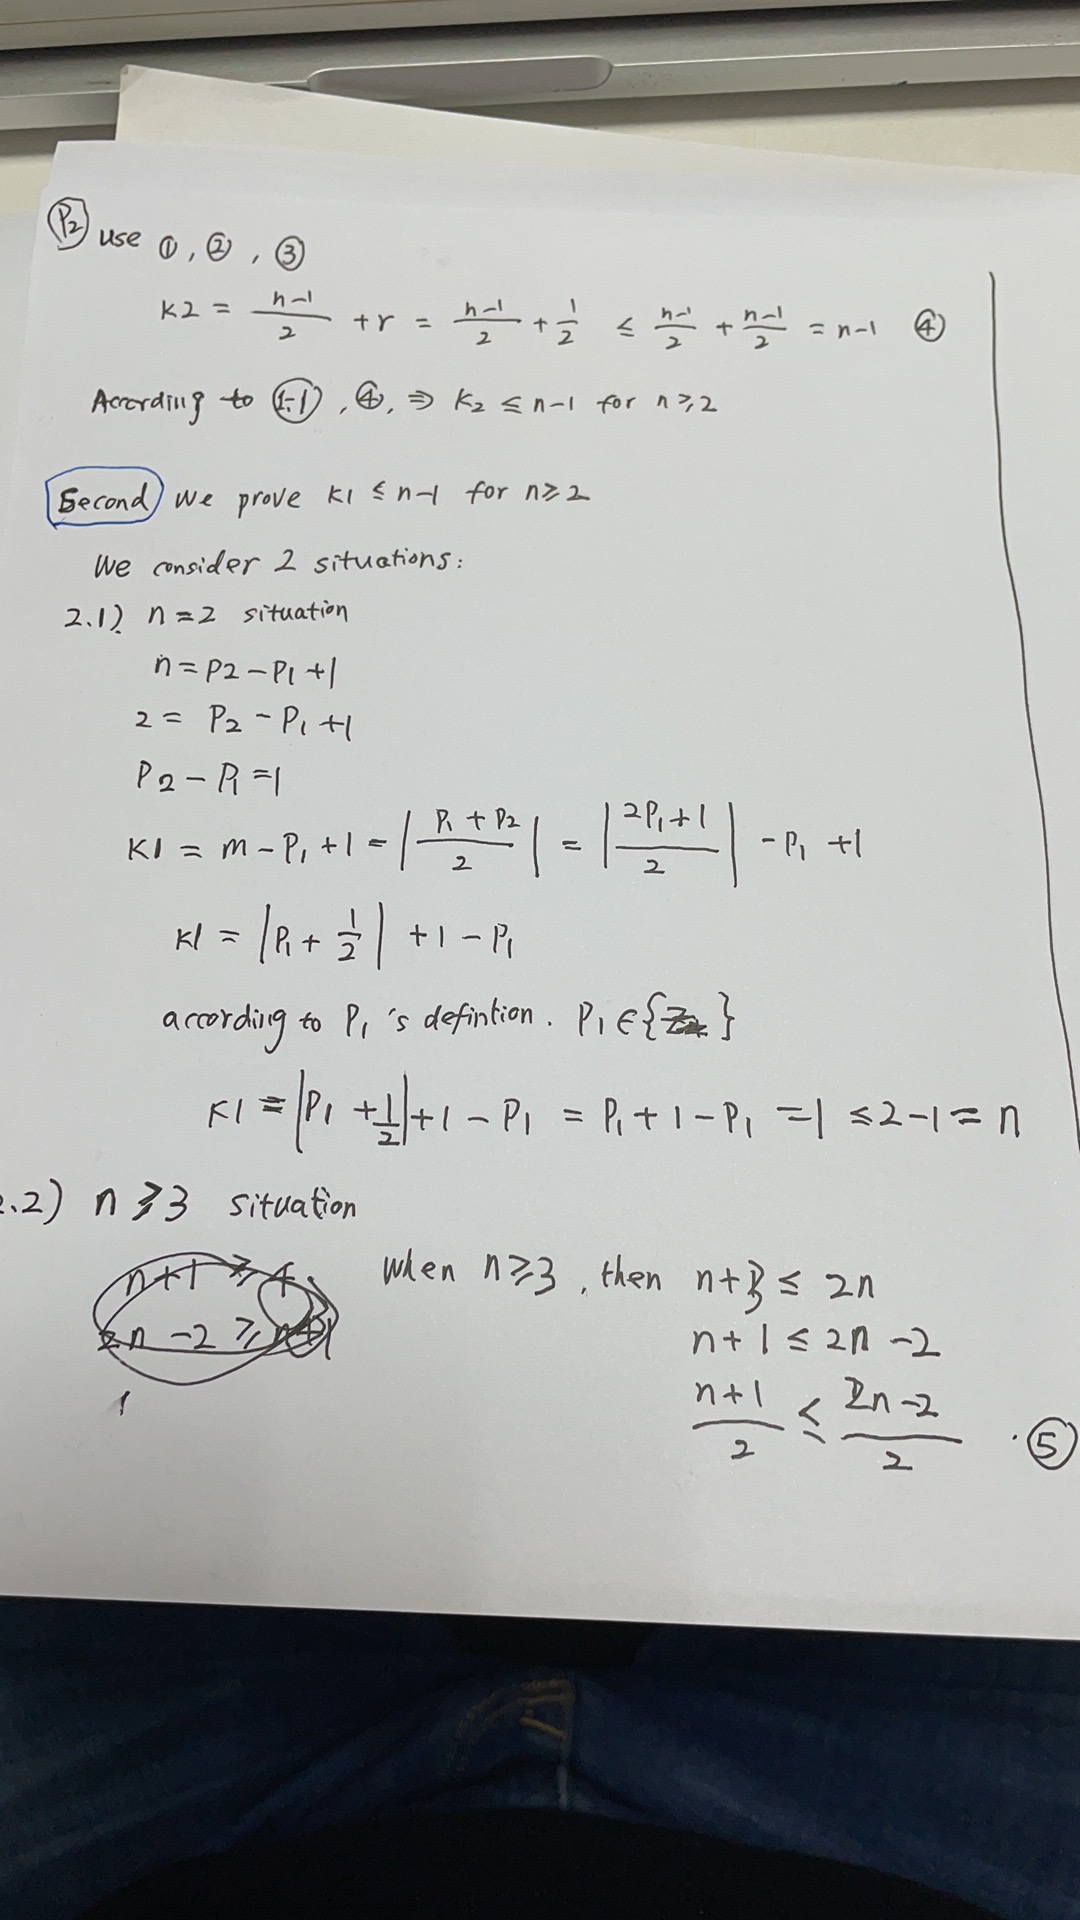 P2 use ①, ②, ③
K2 = (n-1)/2 + r = (n-1)/2 + 1/2 ≤ (n-1)/2 + (n-1)/2 = n-1 ④
According to 1.1, ④, ⇒ K2 ≤ n-1 for n≥2
Second We prove K1 ≤ n-1 for n≥2
We consider 2 situations:
2.1) n=2 situation
n = P2 - P1 + 1
2 = P2 - P1 + 1
P2 - P1 = 1
K1 = m - P1 + 1 = |(P1 + P2)/2| = |(2P1+1)/2| - P1 + 1
K1 = |P1 + 1/2| + 1 - P1
according to P1's defintion. P1 ∈ { }
K1 = |P1 + 1/2| + 1 - P1 = P1 + 1 - P1 = 1 ≤ 2-1 = n
.2) n≥3 situation
n+1 ≥ 4
2n - 2 ≥
when n≥3, then n+3 ≤ 2n
n+1 ≤ 2n - 2
(n+1)/2 ≤ (2n-2)/2 . ⑤